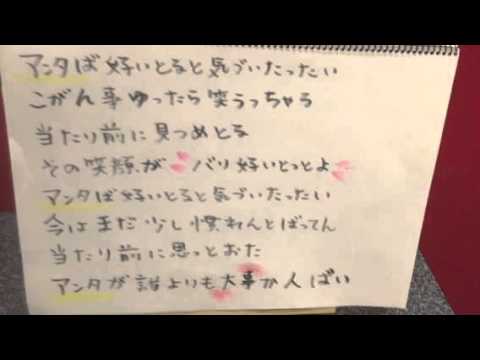 アンタば好いとると気づいたったい
こがん事ゆったら笑うっちゃろ
当たり前に見つめとる
その笑顔がバリ好いとっとよ
アンタば好いとると気づいたったい
今はまだ少し慣れんとばってん
当たり前に思っとおた
アンタが誰よりも大事か人ばい